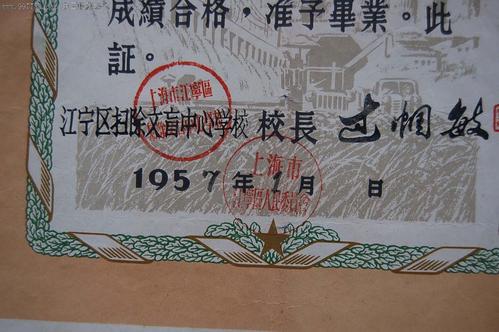 成績合格，准予畢業。此
証。
上海市江寧區
江宁区扫除文盲中心学校 校長 敏
1957年1月 日
上海市
江寧區人民委員會